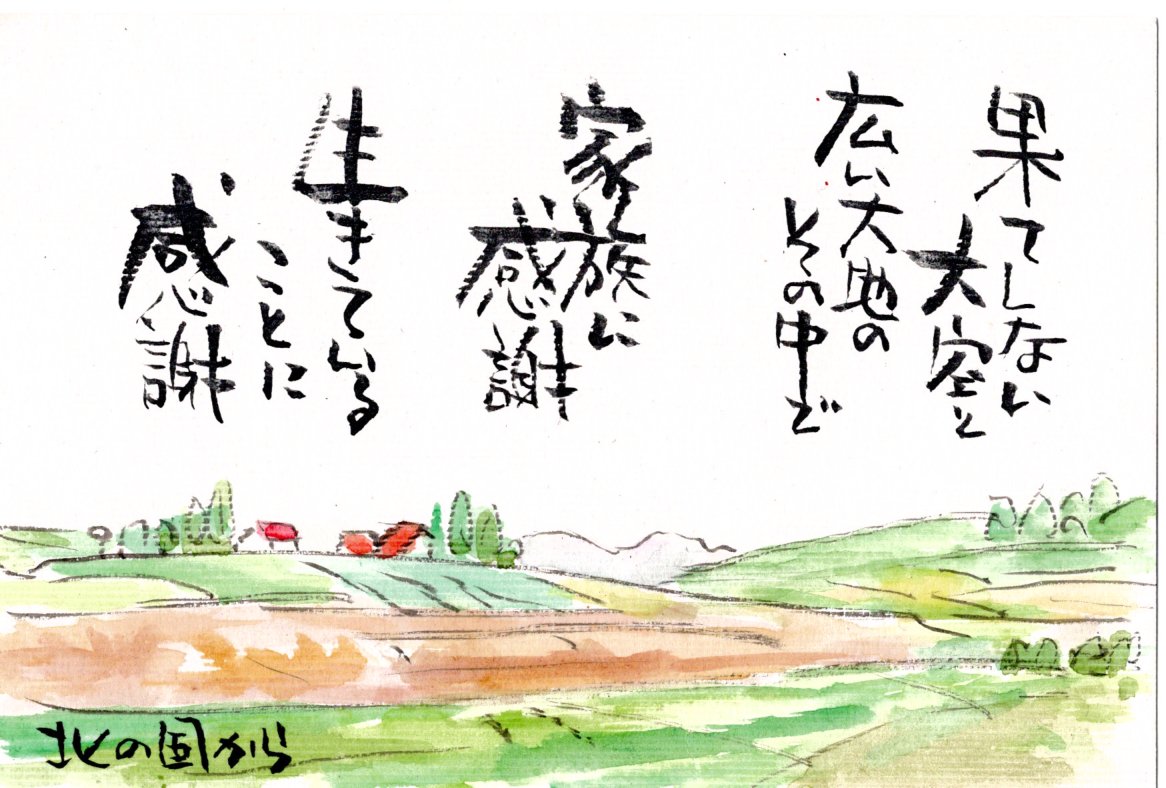 果てしない
大空と
広い大地の
その中で
家族に
感謝
生きている
ことに
感謝
北の国から